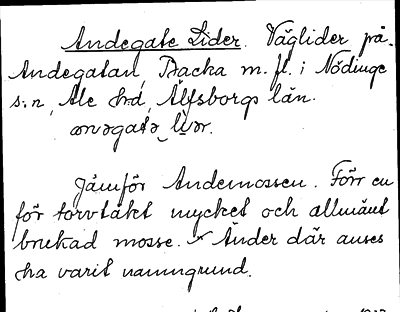 Andegate Lider. Väglider på
Andegatan, Backa m. fl. i Nödinge
s:n, Ale h:d, Älfsborgs län.
anəgatə līər.
Jämför Andemossen. Förr en
för torvtäkt mycket och allmänt
brukad mosse. Änder där anses
ha varit namngrund.